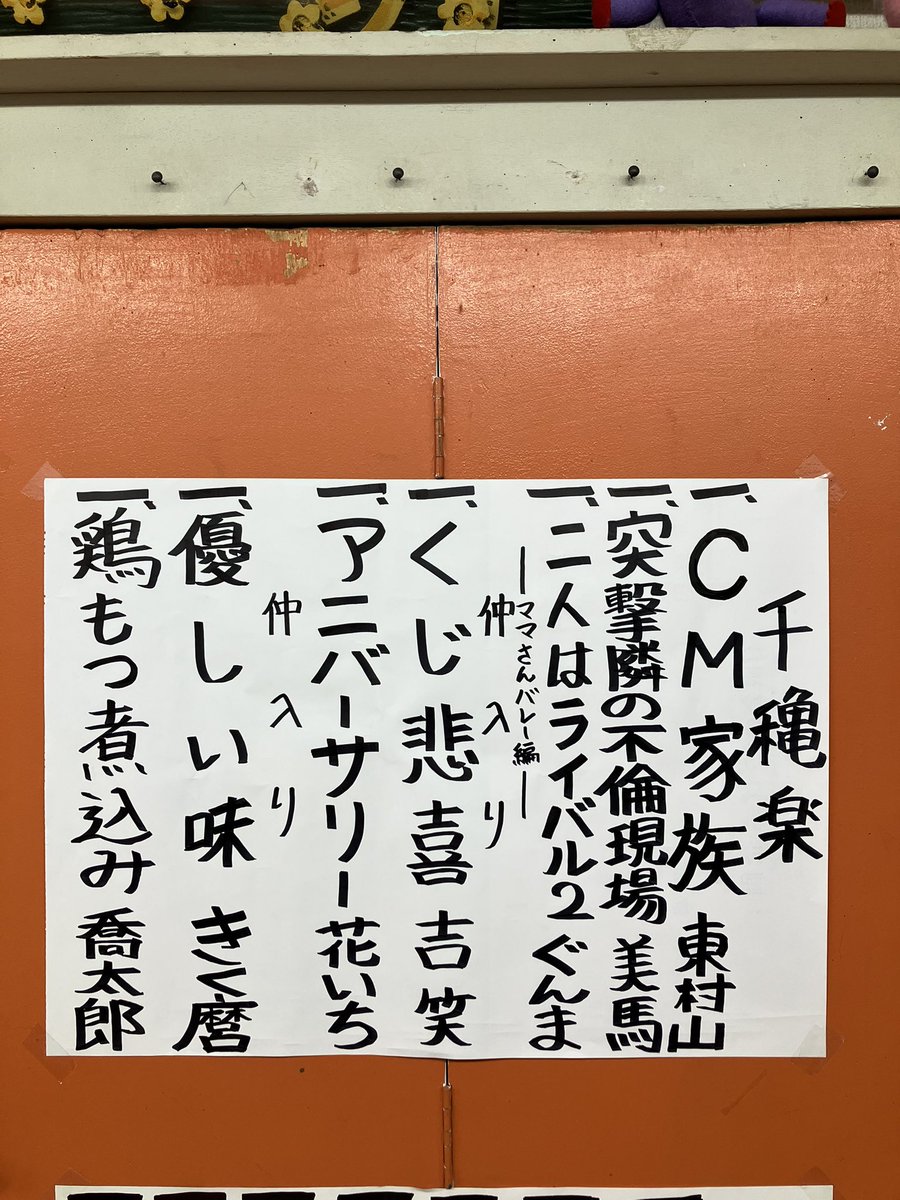 千穐楽
一、CM家族 東村山
一、突撃隣の不倫現場 美馬
一、二人はライバル2 ぐんま
―ママさんバレー編―
仲入り
一、くじ悲喜 吉笑
一、アニバーサリー 花いち
仲入り
一、優しい味 きく麿
一、鶏もつ煮込み 喬太郎